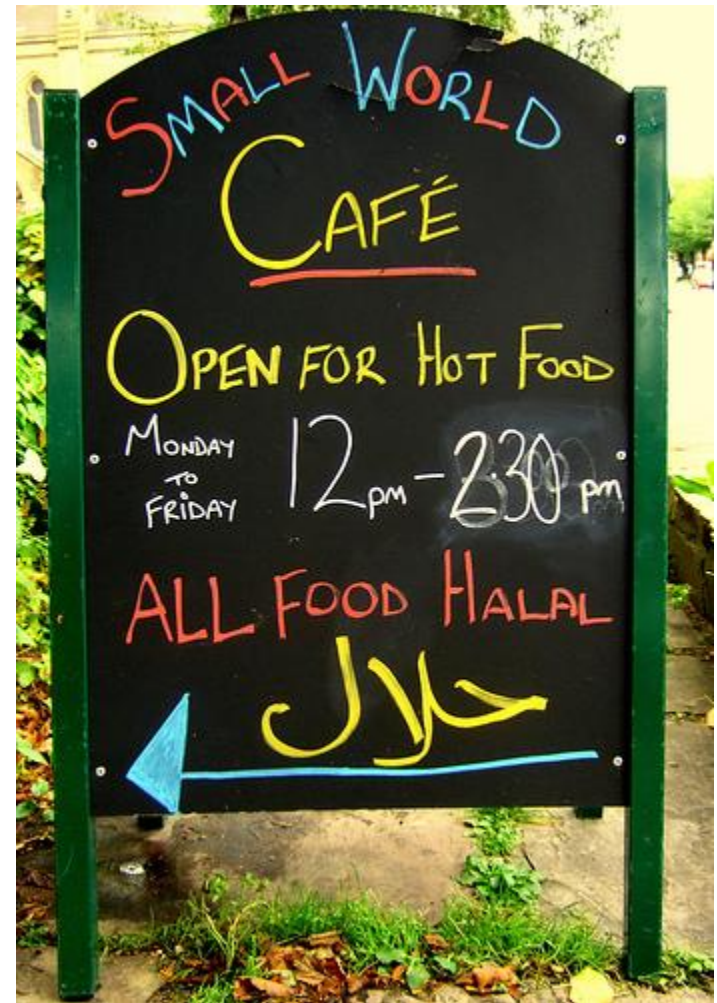 SMALL WORLD
CAFÉ
OPEN FOR HOT FOOD
MONDAY
TO
FRIDAY
12pm - 2.30 pm
ALL FOOD HALAL
حلال